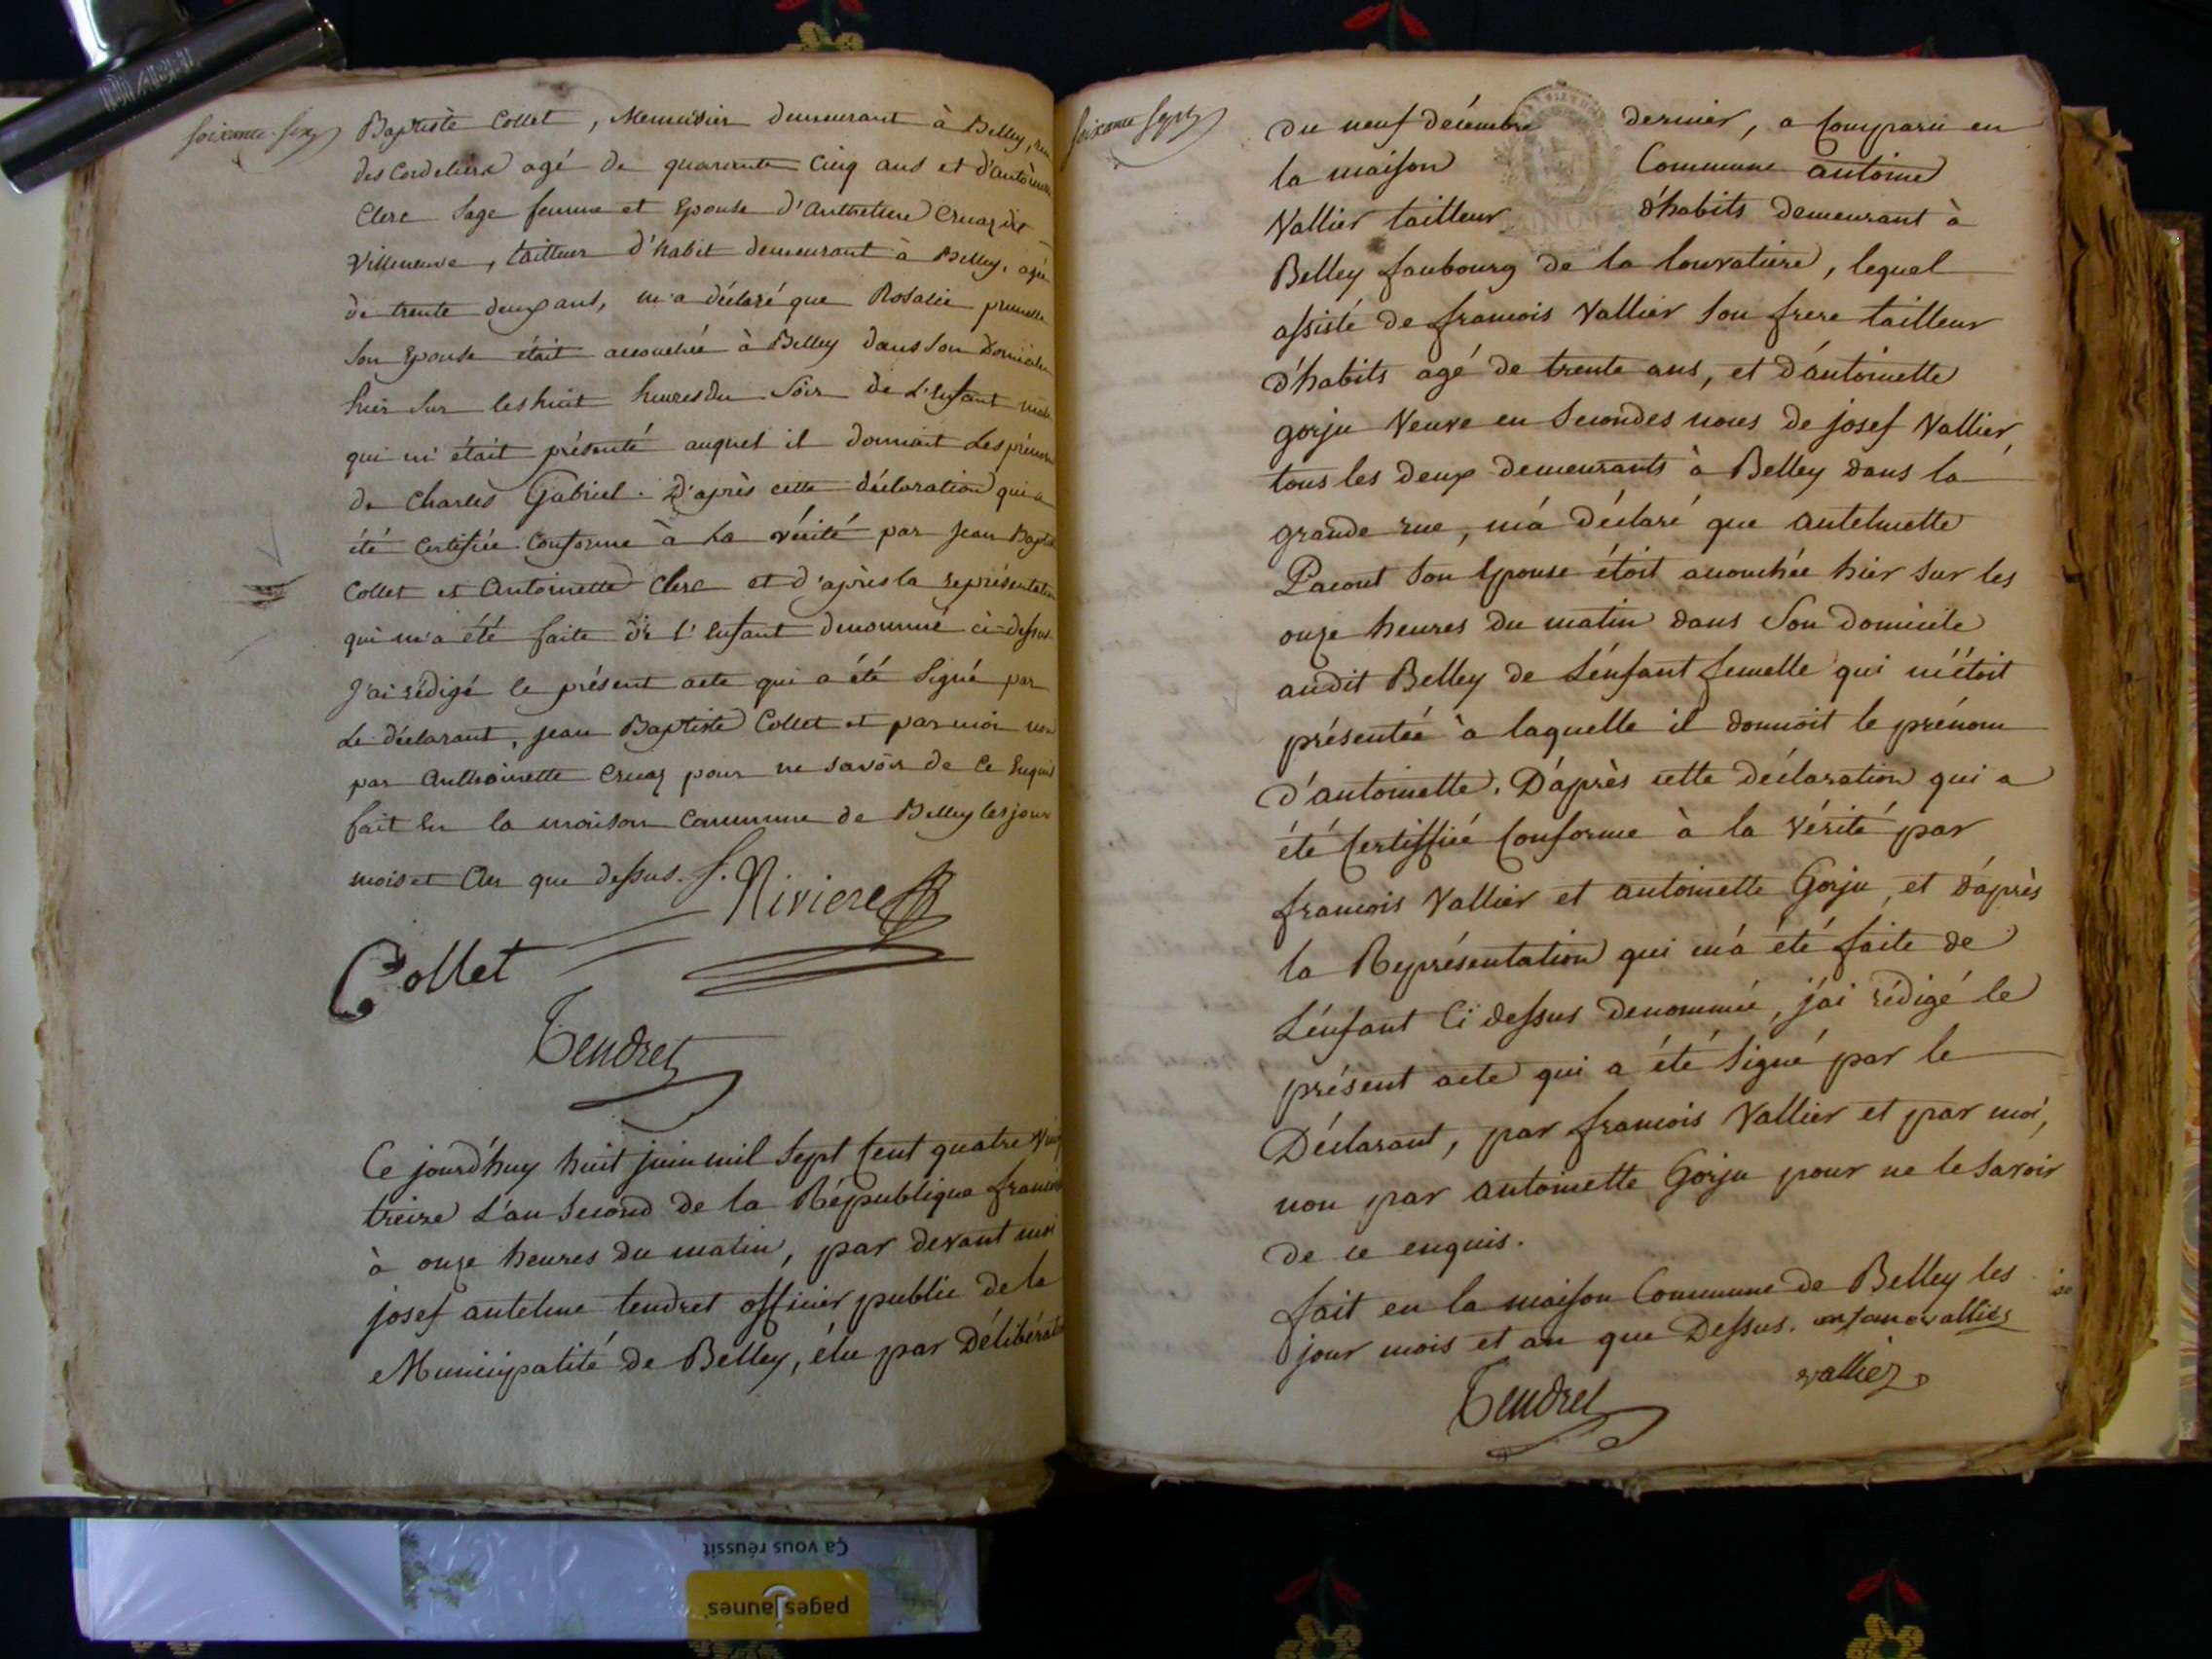 soixante-six
Baptiste Collet, Menuisier demeurant à Belley, rue
des Cordeliers agé de quarante Cinq ans et d'antoinette
Clerc Sage femme et Epouse d'Anthelme Cruaz dit
Villeneuve, tailleur d'habit demeurant à Belley, agée
de trente deux ans, m'a déclaré que Rosalie prunelle
Son Epouse était accouchée à Belley dans Son Domicile
hier Sur les huit heures du Soir de L'Enfant male
qui m'était présenté auquel il donnait Les prénoms
de Charles Gabriel. D'après cette déclaration qui a
été Certifiée Conforme à La vérité par Jean Baptiste
Collet et Antoinette Clerc et d'après la représentation
qui m'a été faite de l'Enfant denommé ci-dessus
J'ai rédigé le présent acte qui a été Signé par
Le déclarant, jean Baptiste Collet et par moi non
par Anthoinette Cruaz pour ne savoir de Ce Enquis
fait En la maison Commune de Belley les jour
mois et An que dessus. f. Riviere
Collet
Tendret
Ce jourd'huy huit juin mil Sept Cent quatre Vingt
treize L'an Second de la République francoise
à onze heures du matin, par devant moi
josef antelme tendret officier public de la
Municipalité de Belley, élu par Délibération
soixante Sept
du neuf décembre dernier, a Comparu en
la maison Commune antoine
Vallier tailleur d'habits demeurant à
Belley faubourg de la louvatiere, lequel
assisté de francois Vallier Son frere tailleur
d'habits agé de trente ans, et d'antoinette
gorju Veuve en Secondes noces de josef Vallier,
tous les deux demeurants à Belley dans la
grande rue, m'a déclaré que antelmette
Pacout Son Epouse étoit accouchée hier Sur les
onze heures du matin dans Son domicile
audit Belley de L'enfant femelle qui m'étoit
présentée à laquelle il donnoit le prénom
d'antoinette. D'après cette déclaration qui a
été Certiffiée Conforme à la Vérité par
francois Vallier et antoinette Gorju, et d'après
la Représentation qui m'a été faite de
L'enfant Ci dessus denommée, j'ai rédigé le
présent acte qui a été Signé par le
Déclarant, par francois Vallier et par moi,
non par antoinette Gorju pour ne le Savoir
de ce enquis.
fait en la maison Commune de Belley les
jour mois et an que Dessus. vallier
vallier
Tendret
Ça vous réussit
pages jaunes